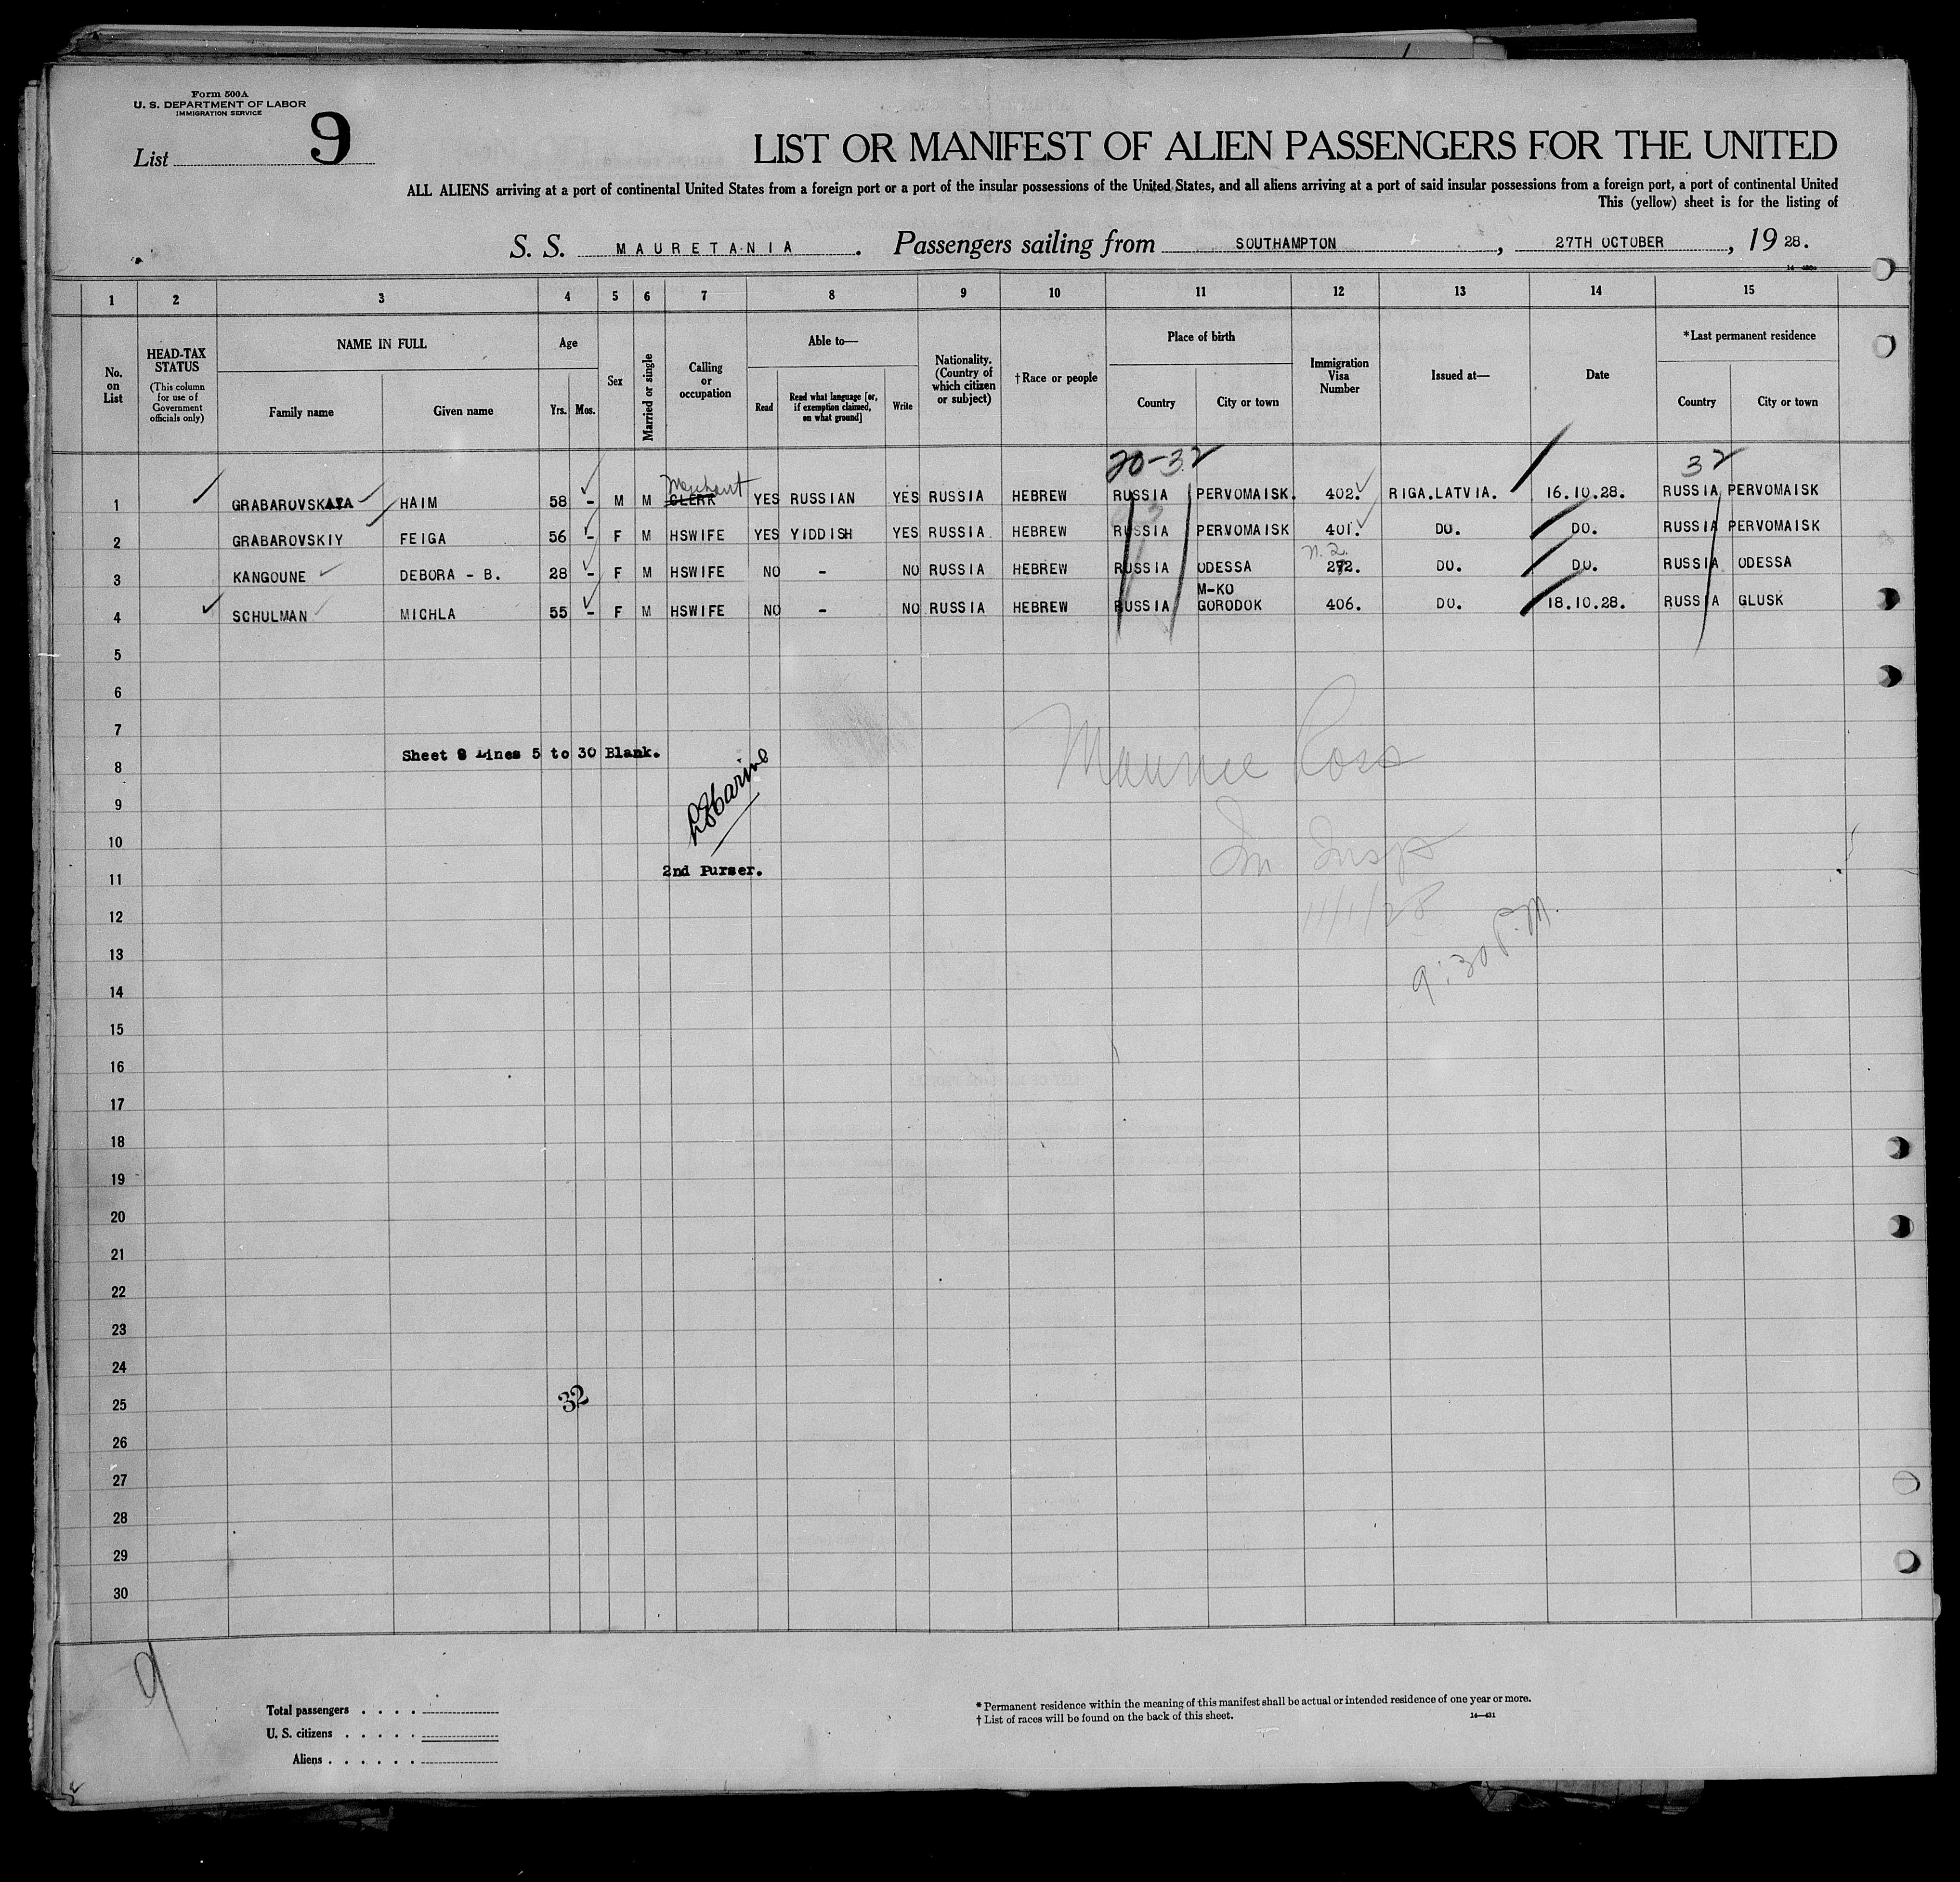 Form 500A
U. S. DEPARTMENT OF LABOR
IMMIGRATION SERVICE
List 9
LIST OR MANIFEST OF ALIEN PASSENGERS FOR THE UNITED
ALL ALIENS arriving at a port of continental United States from a foreign port or a port of the insular possessions of the United States, and all aliens arriving at a port of said insular possessions from a foreign port, a port of continental United
This (yellow) sheet is for the listing of
S. S. MAURETANIA. Passengers sailing from SOUTHAMPTON, 27TH OCTOBER, 19 28.
1 2 3 4 5 6 7 8 9 10 11 12 13 14 15
No. on List
HEAD-TAX STATUS
(This column for use of Government officials only)
NAME IN FULL
Family name Given name
Age
Yrs. Mos.
Sex
Married or single
Calling or occupation
Able to—
Read
Read what language [or, if exemption claimed, on what ground]
Write
Nationality. (Country of which citizen or subject)
†Race or people
Place of birth
Country City or town
Immigration Visa Number
Issued at—
Date
*Last permanent residence
Country City or town
20-32 32
Merchant
1 GRABAROVSKAYA HAIM 58 - M M CLERK YES RUSSIAN YES RUSSIA HEBREW RUSSIA PERVOMAISK. 402. RIGA.LATVIA. 16.10.28. RUSSIA PERVOMAISK
2 GRABAROVSKIY FEIGA 56 - F M HSWIFE YES YIDDISH YES RUSSIA. HEBREW RUSSIA PERVOMAISK 401. DO. DO. RUSSIA PERVOMAISK
n.2.
3 KANGOUNE DEBORA - B. 28 - F M HSWIFE NO - NO RUSSIA HEBREW RUSSIA ODESSA 272. DO. DO. RUSSIA ODESSA
4 SCHULMAN MICHLA 55 - F M HSWIFE NO - NO RUSSIA HEBREW RUSSIA M-KO GORODOK 406. DO. 18.10.28. RUSSIA GLUSK
5
6
7
Sheet 9 Lines 5 to 30 Blank.
Maurice Ross
8
9
10
Im Insp
11
2nd Purser.
12
11/1/28
13
9:30 P.M.
14
15
16
17
18
19
20
21
22
23
24
25
32
26
27
28
29
30
9
Total passengers . . . .
U. S. citizens . . . . .
Aliens . . . . . .
* Permanent residence within the meaning of this manifest shall be actual or intended residence of one year or more.
† List of races will be found on the back of this sheet.
14—431